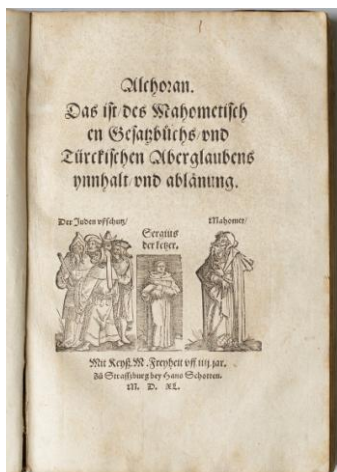 Alchoran.
Das ist/des Mahometisch
en Gesatzbüchs/vnd
Türckischen Aberglaubens
ynnhalt/vnd ablänung.
Der Juden vffschutz/
Sergius
der ketzer.
Mahomet/
Mit Keyß. M. Freyheit vff iiij jar.
Zů Straßburg bey Hans Schotten.
M. D. XL.